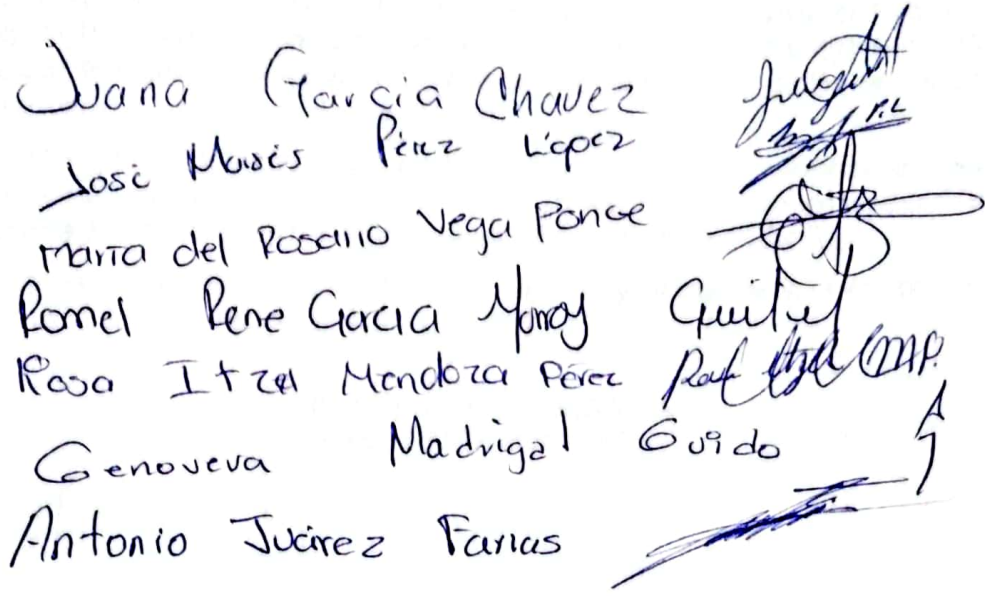 Juana Garcia Chavez
José Moisés Pérez López P.L
Maria del Rosario Vega Ponce
Romel Rene Garcia Monroy
Rosa Itzel Mendoza Pérez Itzel M.P.
Genoveva Madrigal Guido
Antonio Juárez Farias